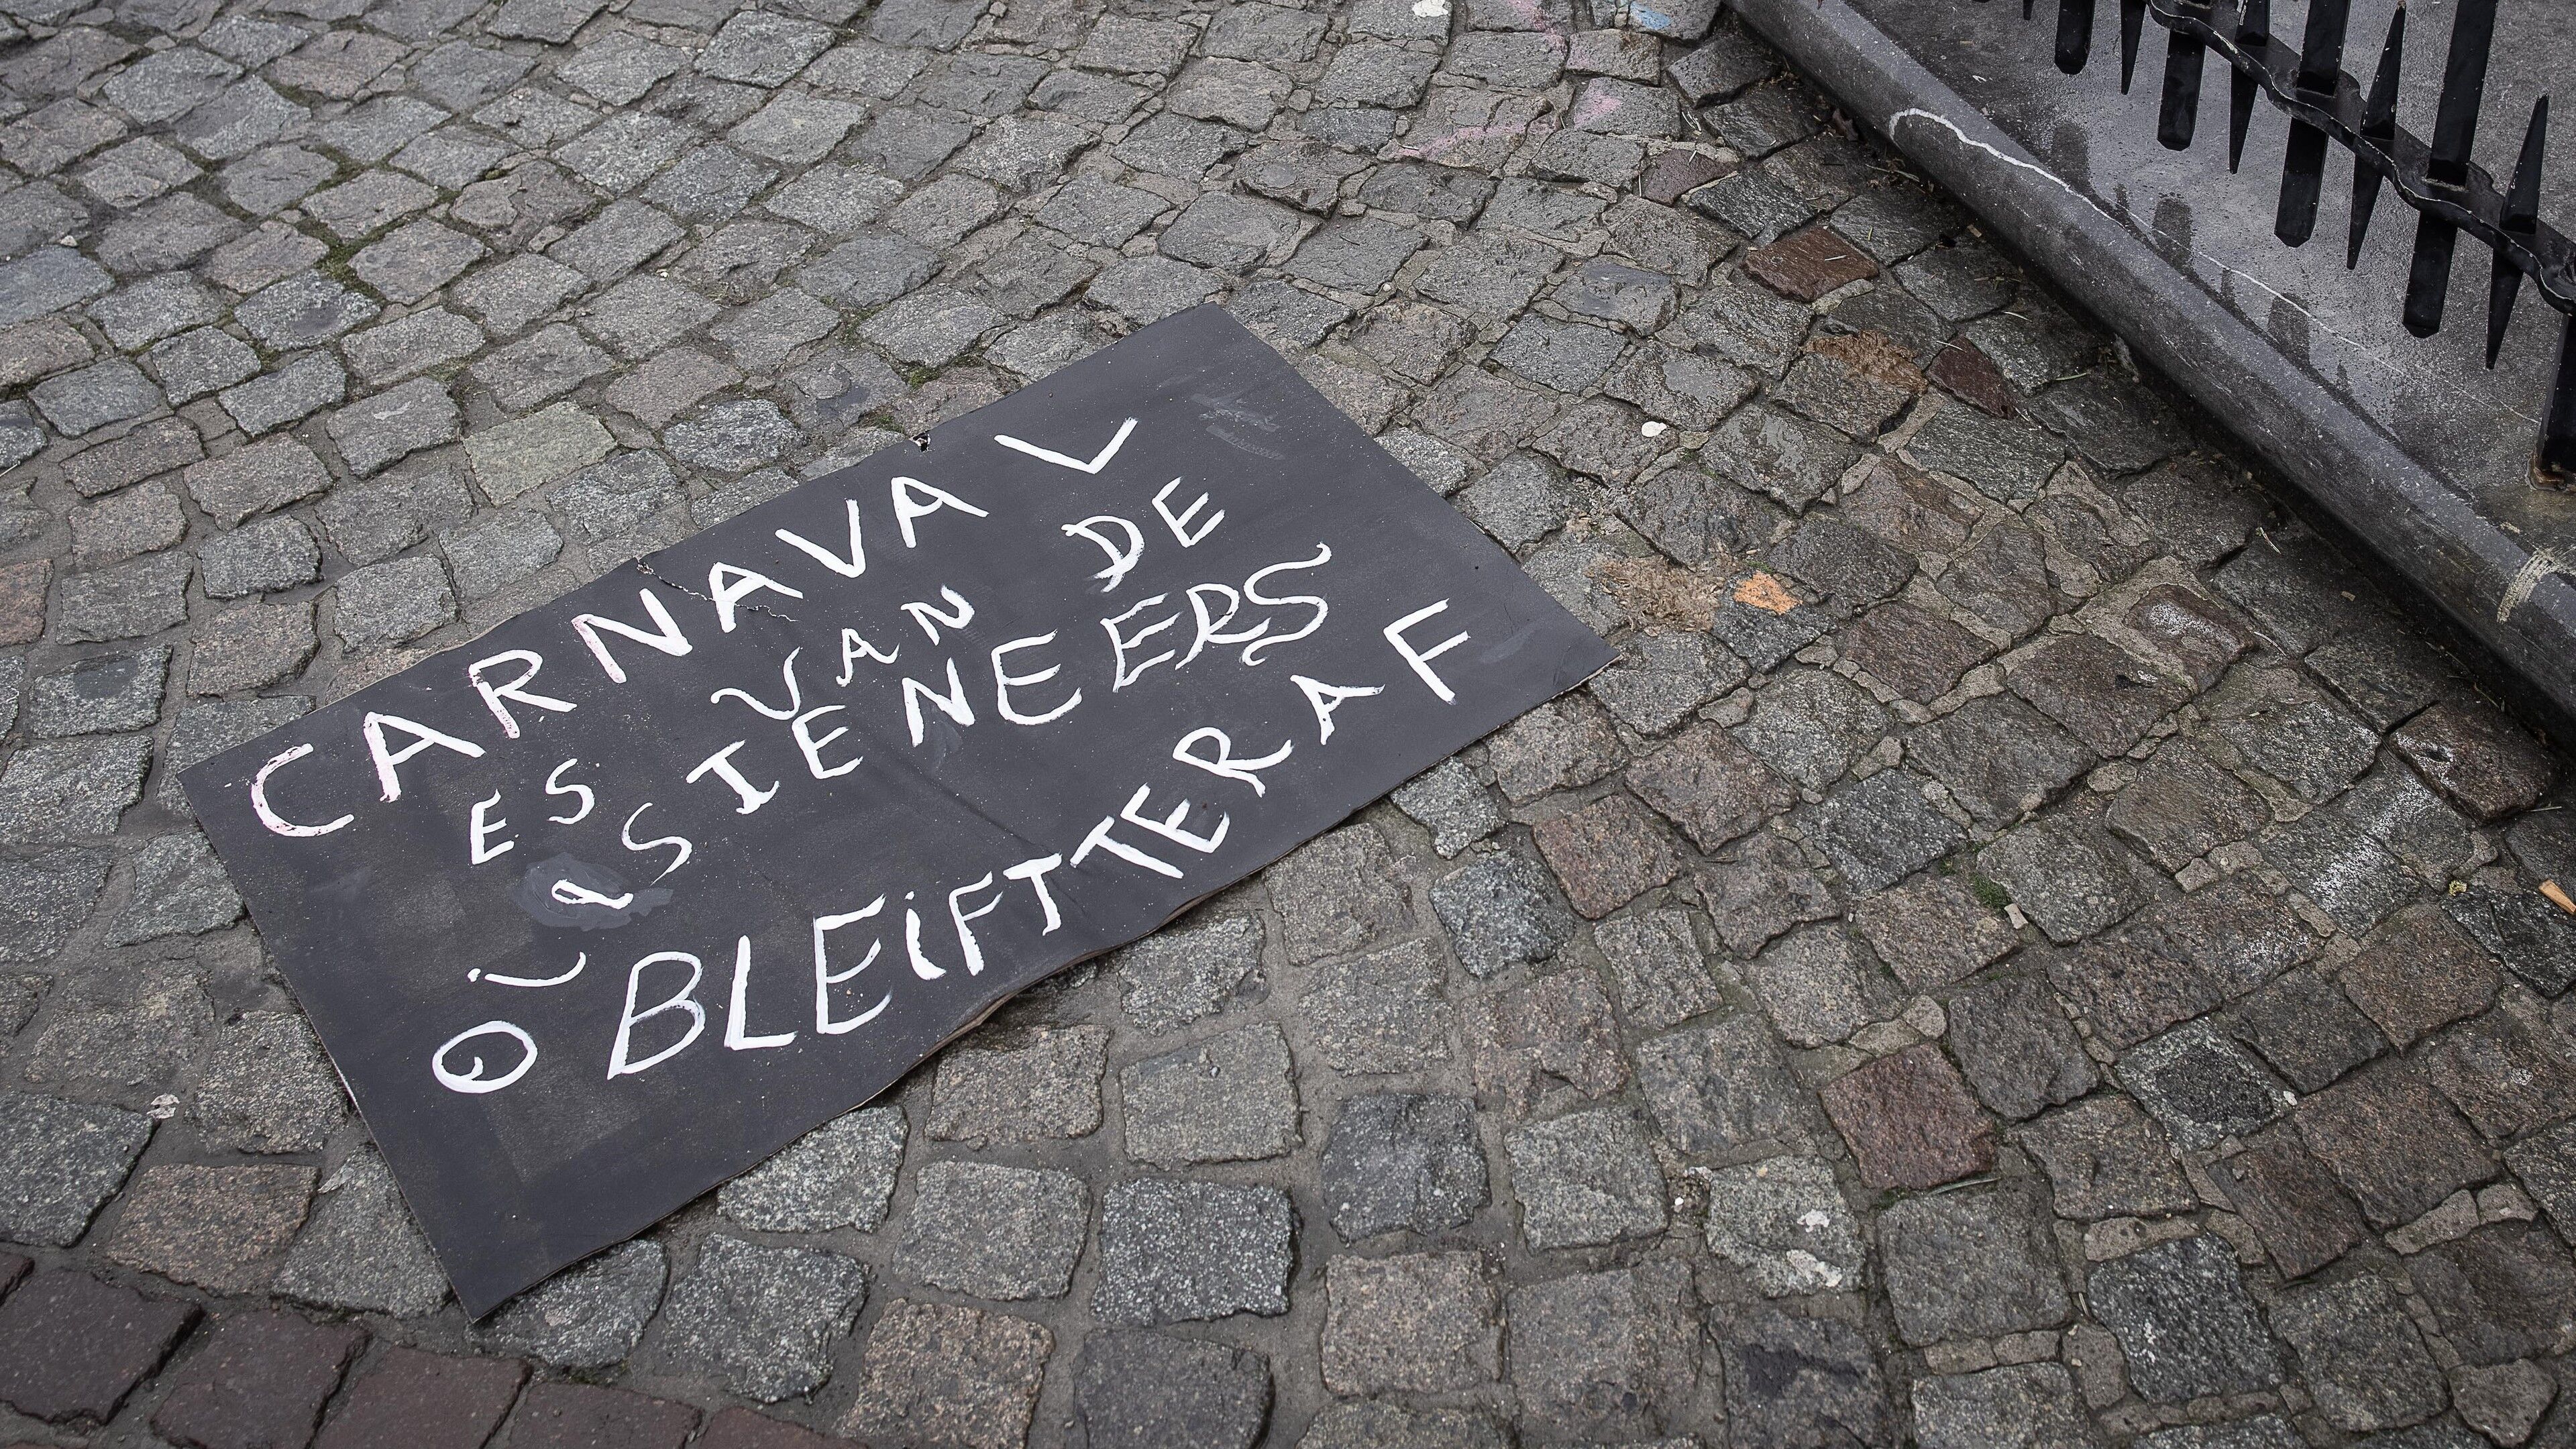 CARNAVAL
ES VAN DE
OILSJTENEERS
BLEIFT TERAF